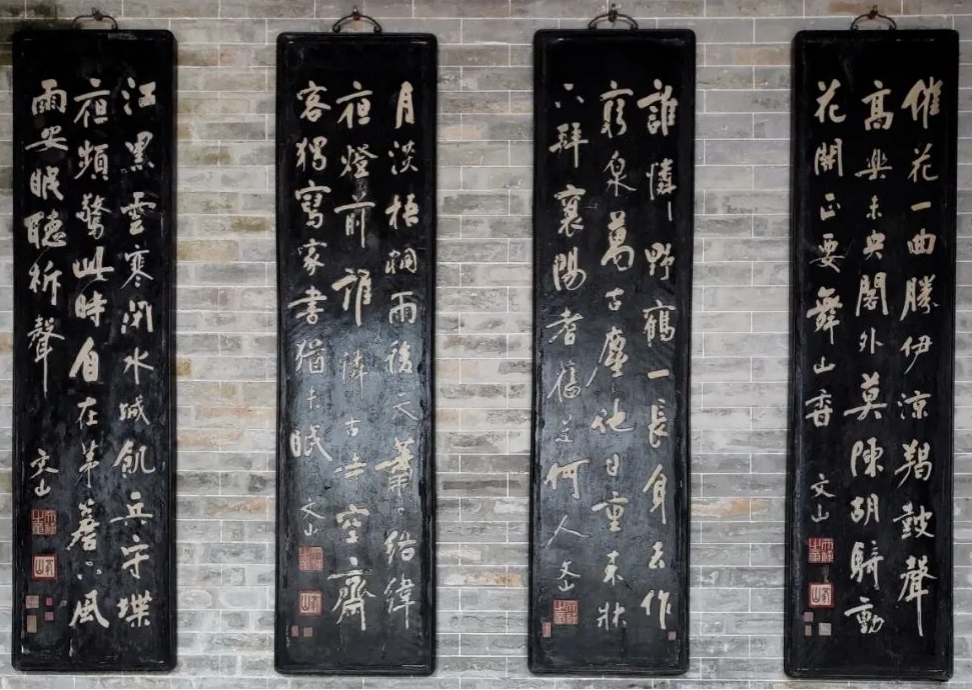 催花一曲勝伊涼羯鼓聲
高樂未央閣外莫陳胡騎動
花開正要舞山香
文山
誰憐野鶴一長身去作
窮泉萬古塵他日重來牀
下拜襄陽耆舊是何人
文山
月淡梧桐雨後天蕭々絡緯
夜燈前誰憐古寺空齋
客獨寫家書猶未眠
文山
江黑雲寒閉水城飢兵守堞
夜頻驚此時自在茅簷下風
雨安眠聽柝聲
文山